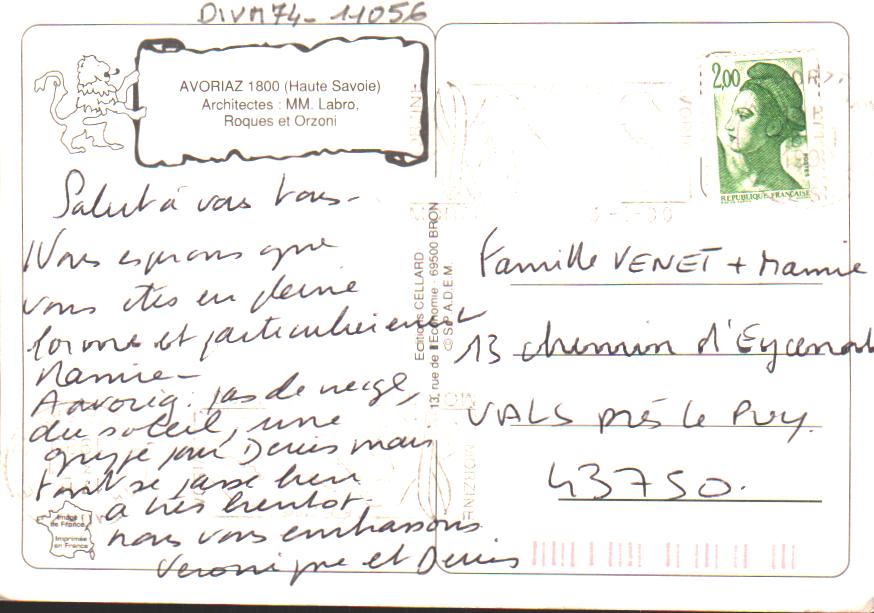 DIVM74-11056
AVORIAZ 1800 (Haute Savoie)
Architectes : MM. Labro,
Roques et Orzoni
Salut à vous tous-
Nous esperons que
vous etes en pleine
forme et particulièrement
Mamie-
A avoriaz. pas de neige,
du soleil, une
grippe pour Denis mais
tout se passe bien
a très bientot-
nous vous embrassons
Veronique et Denis
Image
de France
Imprimée
en France
Editions CELLARD
13, rue de l'Economie - 69500 BRON
© S.P.A.D.E.M.
2,00
REPUBLIQUE FRANÇAISE
POSTES
MORZINE
Famille VENET + Mamie
13 chemin d'Eycenat
VALS près le Puy.
43750.